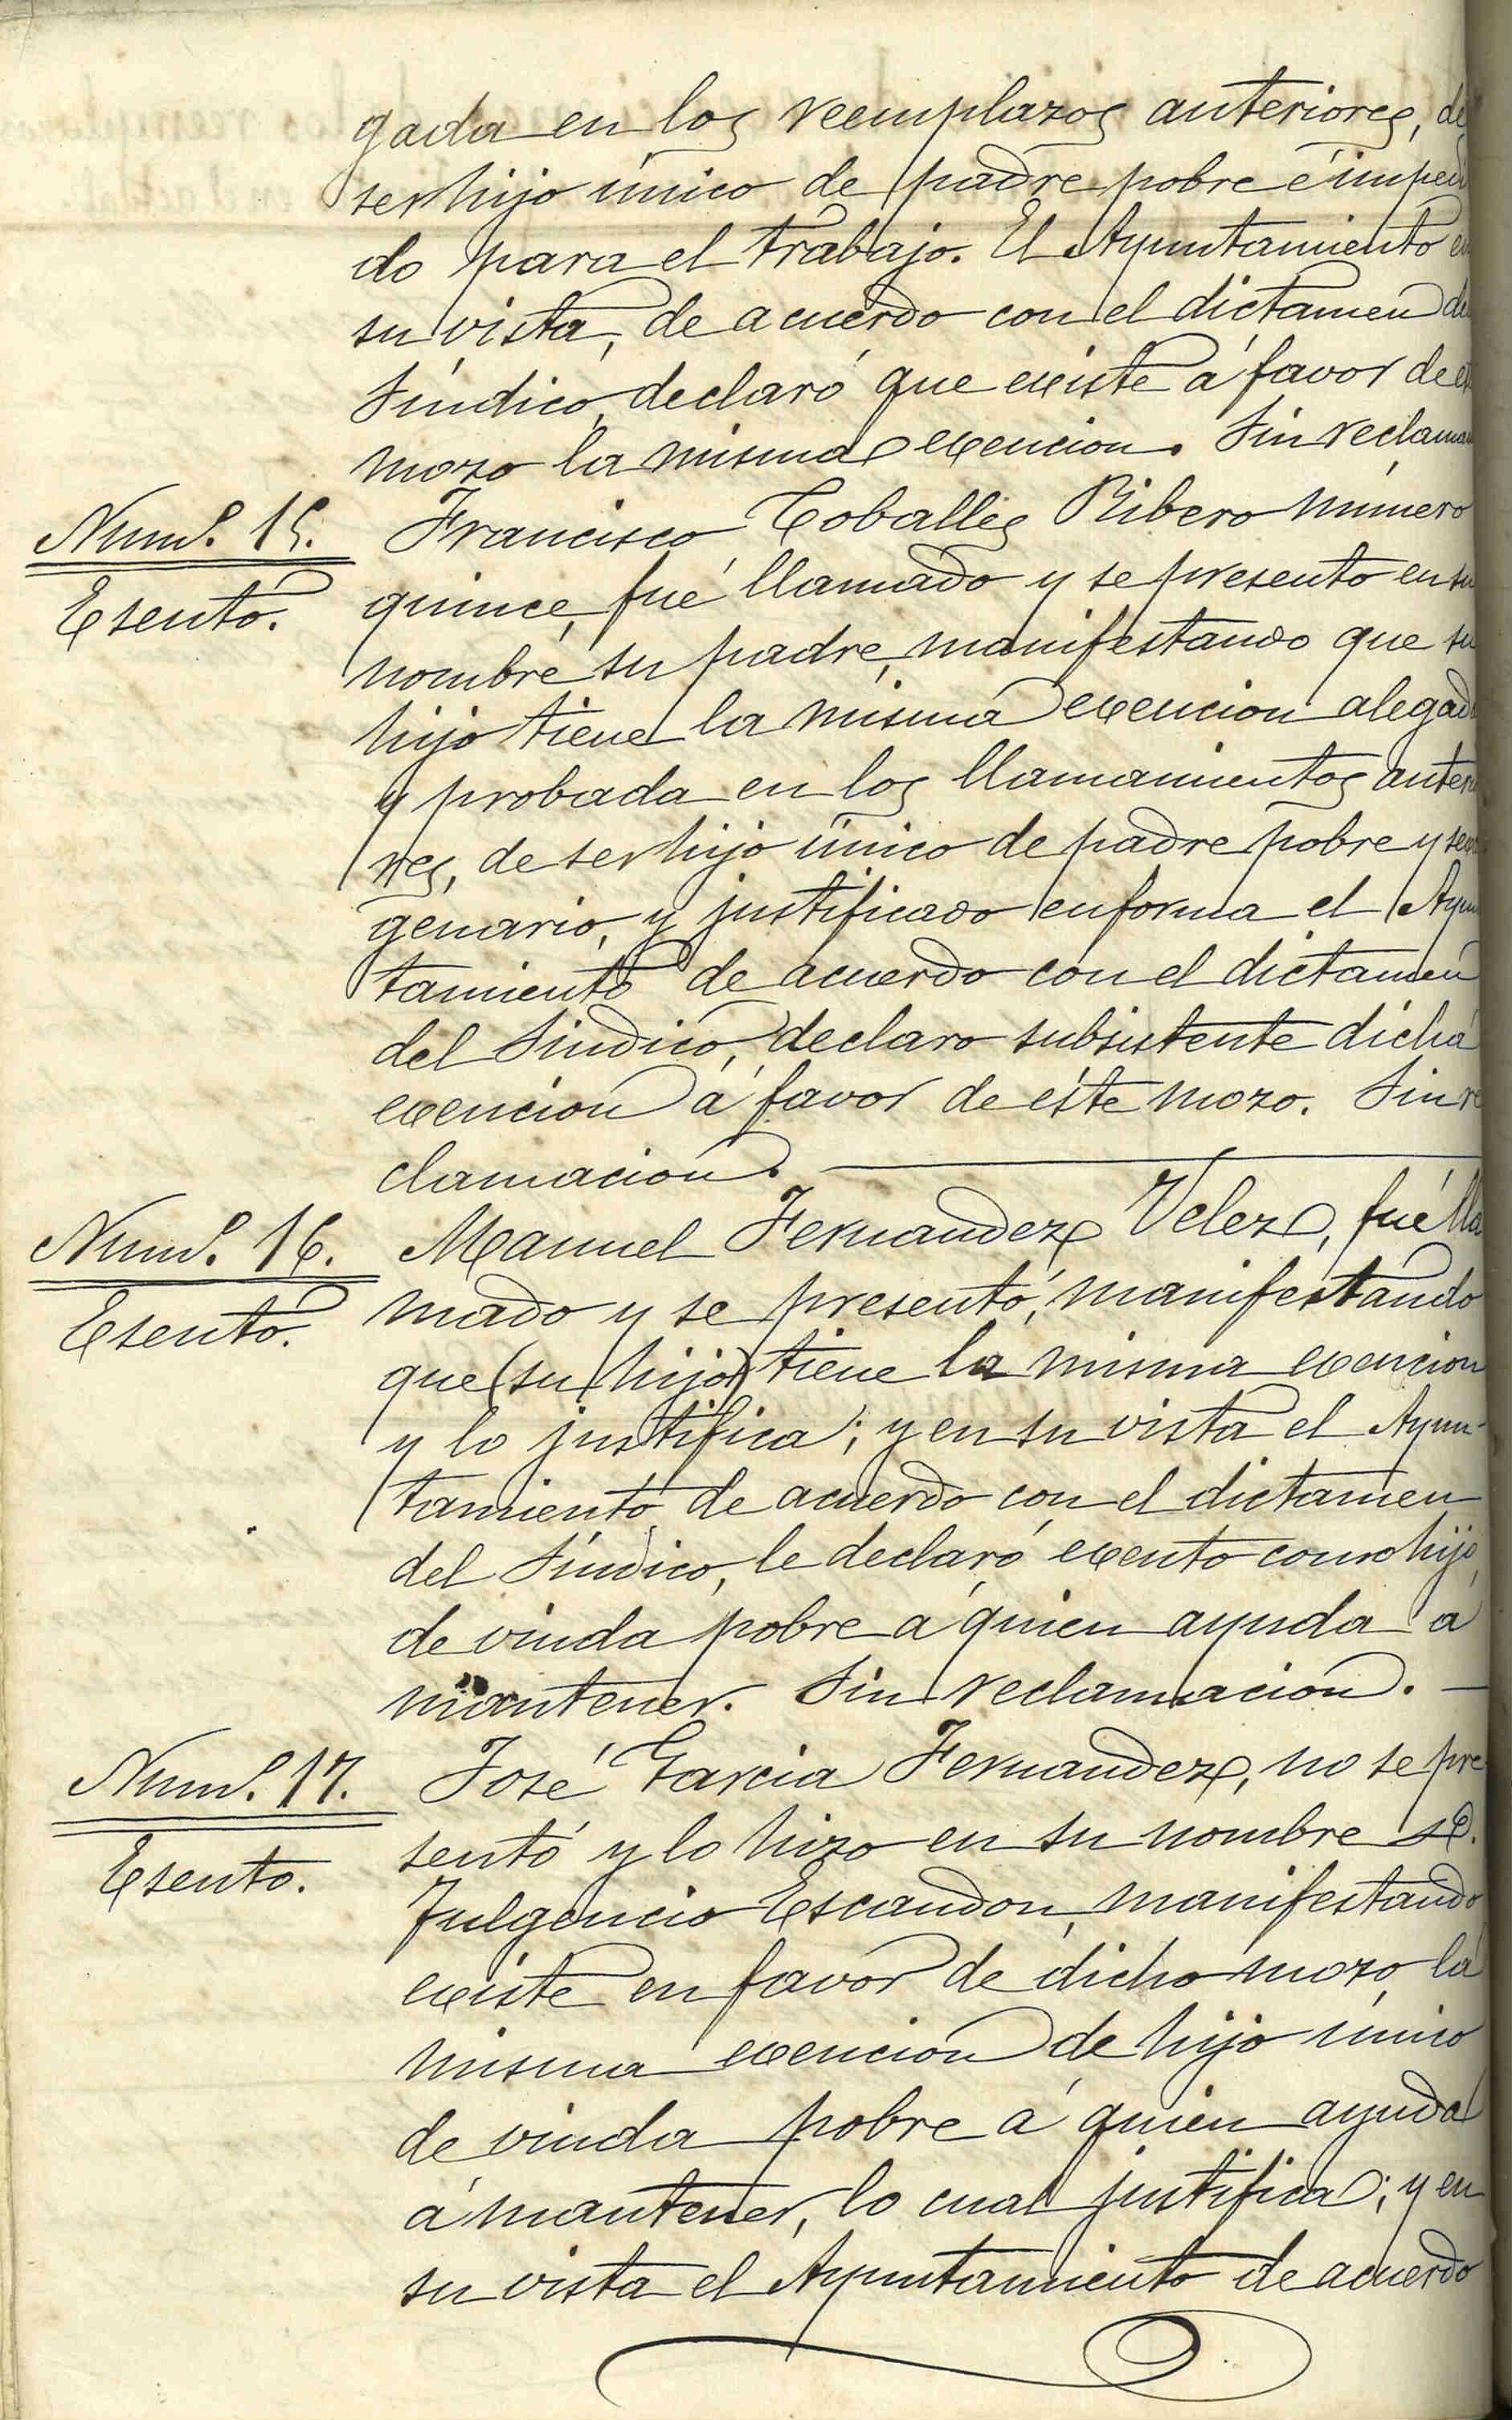 gada en los reemplazos anteriores, de
ser hijo único de padre pobre é impedi
do para el trabajo. El Ayuntamiento en
su vista, de acuerdo con el dictamen del
Síndico, declaró que existe á favor de
mozo la misma exencion. Sin reclama
Num.º 15.
Francisco Coballes Ribero número
quince, fué llamado y se presento en su
Esento.
nombre su padre, manifestando que su
hijo tiene la misma exencion alegada
y probada en los llamamientos anterio
res, de ser hijo único de padre pobre y sexa
genario, y justificado en forma el Ayun
tamiento de acuerdo con el dictamen
del Sindico, declaro subsistente dicha
exencion á favor de éste mozo. Sin re
clamacion.
Num.º 16.
Manuel Fernandez Velez, fué lla
Esento.
mado y se presentó, manifestando
que (su hijo) tiene la misma exencion
y lo justifica; y en su vista el Ayun-
tamiento de acuerdo con el dictamen
del Síndico, le declaró exento como hijo,
de viuda pobre á quien ayuda á
mantener. Sin reclamacion.
Num.º 17.
José Garcia Fernandez, no se pre
sentó y lo hizo en su nombre
Esento.
Fulgencio Escandon, manifestando
existe en favor de dicho mozo, la
misma exencion de hijo único
de viuda pobre á quien ayuda
á mantener, lo cual justifica; y en
su vista el Ayuntamiento de acuerdo